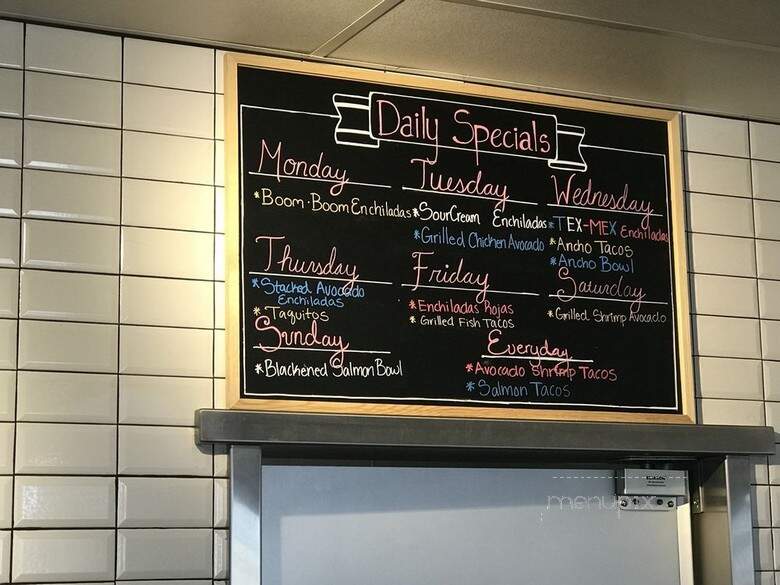 Daily Specials
Monday
*Boom-Boom Enchiladas
Tuesday
*Sour Cream Enchiladas
*Grilled Chicken Avocado
Wednesday
*TEX-MEX Enchiladas
*Ancho Tacos
*Ancho Bowl
Thursday
*Stacked Avocado
Enchiladas
*Taquitos
Friday
*Enchiladas Rojas
*Grilled Fish Tacos
Saturday
*Grilled Shrimp Avocado
Sunday
*Blackened Salmon Bowl
Everyday
*Avocado Shrimp Tacos
*Salmon Tacos
menupix